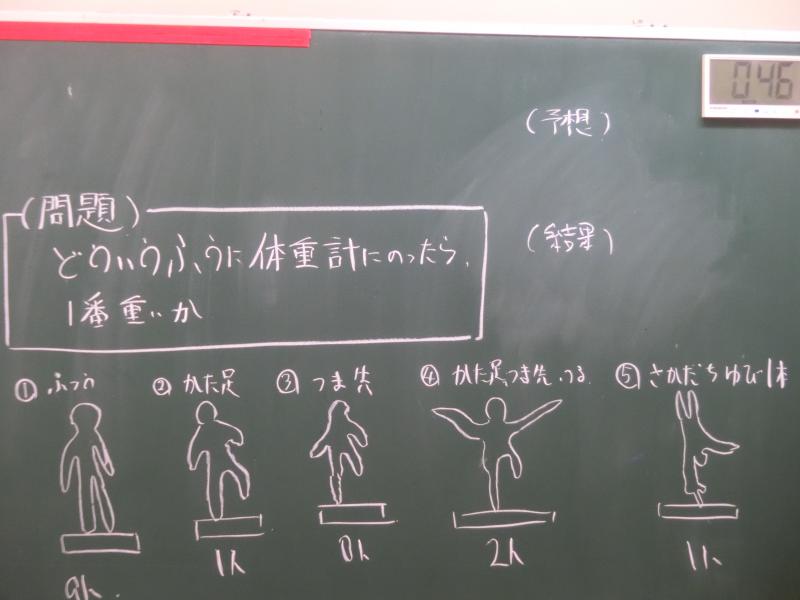 0:46
(予想)
(問題)
どういうふうに体重計にのったら、
1番重いか
(結果)
①ふつう
②かた足
③つま先
④かた足つま先、つる
⑤さかだちゆび1本
9人
1人
0人
2人
1人